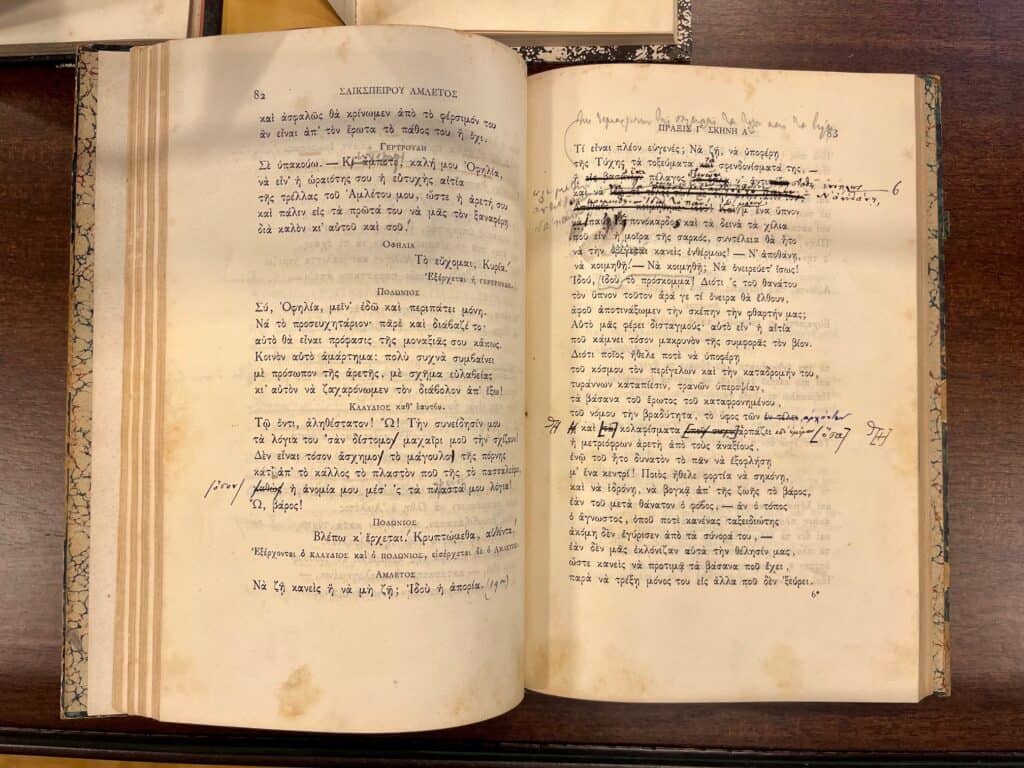 82
ΣΑΙΚΣΠΕΙΡΟΥ ΑΜΛΕΤΟΣ
καὶ ἀσφαλῶς θὰ κρίνωμεν ἀπὸ τὸ φέρσιμόν του
ἂν εἶναι ἀπ' τὸν ἔρωτα τὸ πάθος του ἢ ὄχι.
ΓΕΡΤΡΟΥΔΗ
Σὲ ὑπακούω. — Κι ἄμποτε, καλή μου Ὀφηλία,
νὰ εἶν' ἡ ὡραιότης σου ἡ εὐτυχὴς αἰτία
τῆς τρέλλας τοῦ Ἀμλέτου μου, ὥστε ἡ ἀρετή σου
καὶ πάλιν εἰς τὰ πρῶτά του νὰ μᾶς τὸν ξαναφέρῃ
διὰ καλὸν κι' αὐτοῦ καὶ σοῦ!
ΟΦΗΛΙΑ
Τὸ εὔχομαι, Κυρία!
Ἐξέρχεται ἡ ΓΕΡΤΡΟΥΔΗ.
ΠΟΛΩΝΙΟΣ
Σύ, Ὀφηλία, μεῖν' ἐδῶ καὶ περιπάτει μόνη.
Νά τὸ προσευχητάριον· πάρε καὶ διάβαζέ το·
αὐτὸ θὰ εἶναι πρόφασις τῆς μοναξιᾶς σου κάπως.
Κοινὸν αὐτὸ ἁμάρτημα: πολὺ συχνὰ συμβαίνει
μὲ πρόσωπον τῆς ἀρετῆς, μὲ σχῆμα εὐλαβείας
κι' αὐτὸν νὰ ζαχαρόνωμεν τὸν διάβολον ἀπ' ἔξω!
ΚΛΑΥΔΙΟΣ καθ' ἑαυτόν.
Τῷ ὄντι, ἀληθέστατον! Ὤ! Τὴν συνείδησίν μου
τὰ λόγια του 'σὰν δίστομο μαχαίρι μοῦ τὴν σχίζουν!
Δὲν εἶναι τόσον ἄσχημο τὸ μάγουλο τῆς πόρνης
κατόπ' ἀπὸ τὸ κάλλος τὸ πλαστὸν ποῦ τῆς τὸ πασταλείφει,
ὅσον καθὼς ἡ ἀνομία μου μέσ' 'ς τὰ πλαστά μου λόγια!
Ὤ, βάρος!
ΠΟΛΩΝΙΟΣ
Βλέπω κ' ἔρχεται! Κρυπτώμεθα, αὐθέντα!
Ἐξέρχονται ὁ ΚΛΑΥΔΙΟΣ καὶ ὁ ΠΟΛΩΝΙΟΣ, εἰσέρχεται δὲ ὁ ΑΜΛΕΤΟΣ.
ΑΜΛΕΤΟΣ
Νὰ ζῇ κανεὶς ἢ νὰ μὴ ζῇ; Ἰδοὺ ἡ ἀπορία.
ΠΡΑΞΙΣ Γ' ΣΚΗΝΗ Α'
83
Τί εἶναι πλέον εὐγενές; Νὰ ζῇ, νὰ ὑποφέρῃ
τῆς Τύχης τὰ τοξεύματα καὶ σφενδονίσματά της, —
ἢ εἰς πέλαγος
6
καὶ νὰ
μ' ἕνα ὕπνον
πονόκαρδος καὶ τὰ δεινὰ τὰ χίλια
ποῦ εἶν' ἡ μοῖρα τῆς σαρκός, συντέλεια θὰ ἦτο
νὰ τὴν ὀρέγεται κανεὶς ἐνθέρμως! — Ν' ἀποθάνῃ,
νὰ κοιμηθῇ! — Νὰ κοιμηθῇ; Νὰ ὀνειρεύετ' ἴσως!
Ἰδού, ἰδοὺ τὸ πρόσκομμα! Διότι 'ς τοῦ θανάτου
τὸν ὕπνον τοῦτον ἆρά γε τί ὄνειρα θὰ ἔλθουν,
ἀφοῦ ἀποτινάξωμεν τὴν σκέπην τὴν φθαρτήν μας;
Αὐτὸ μᾶς φέρει δισταγμούς· αὐτὸ εἶν' ἡ αἰτία
ποῦ κάμνει τόσον μακρυνὸν τῆς συμφορᾶς τὸν βίον.
Διότι ποῖος ἤθελε ποτὲ νὰ ὑποφέρῃ
τοῦ κόσμου τὸν περίγελων καὶ τὴν καταδρομήν του,
τυράννων καταπίεσιν, τρανῶν ὑπεροψίαν,
τὰ βάσανα τοῦ ἔρωτος τοῦ καταφρονημένου,
τοῦ νόμου τὴν βραδύτητα, τὸ ὕφος τῶν ἐν τέλει
καὶ τὰ κολαφίσματα ἁρπάζει (ὅσα)
ἡ μετριόφρων ἀρετὴ ἀπὸ τοὺς ἀναξίους,
ἐνῷ τοῦ ἦτο δυνατὸν τὸ πᾶν νὰ ἐξοφλήσῃ
μ' ἕνα κεντρί! Ποιὸς ἤθελε φορτία νὰ σηκόνῃ,
καὶ νὰ ἱδρόνῃ, νὰ βογκᾷ ἀπ' τῆς ζωῆς τὸ βάρος,
ἐὰν τοῦ μετὰ θάνατον ὁ φόβος, — ἂν ὁ τόπος
ὁ ἄγνωστος, ὁποῦ ποτὲ κανένας ταξειδιώτης
ἀκόμη δὲν ἐγύρισεν ἀπὸ τὰ σύνορά του, —
ἐὰν δὲν μᾶς ἐκλόνιζαν αὐτὰ τὴν θέλησίν μας,
ὥστε κανεὶς νὰ προτιμᾷ τὰ βάσανα ποῦ ἔχει,
παρὰ νὰ τρέξῃ μόνος του εἰς ἄλλα ποῦ δὲν ξεύρει.
6*